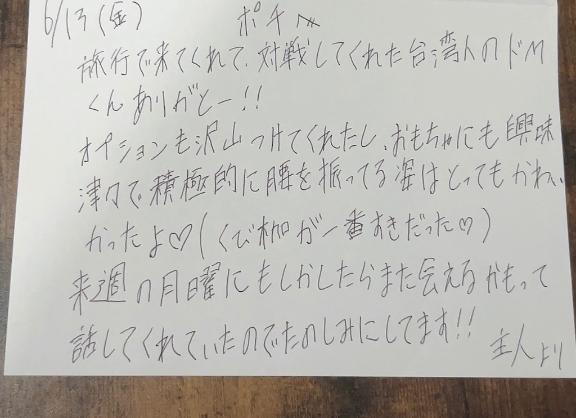 6/13(金) ポチへ
旅行で来てくれて、対戦してくれた台湾人のドM
くんありがとー!!
オプションも沢山つけてくれたし、おもちゃにも興味
津々で積極的に腰を振ってる姿はとってもかわい
かったよ♡(くび枷が一番すきだった♡)
来週の月曜にもしかしたらまた会えるかもって
話してくれていたのでたのしみにしてます!!
主人より